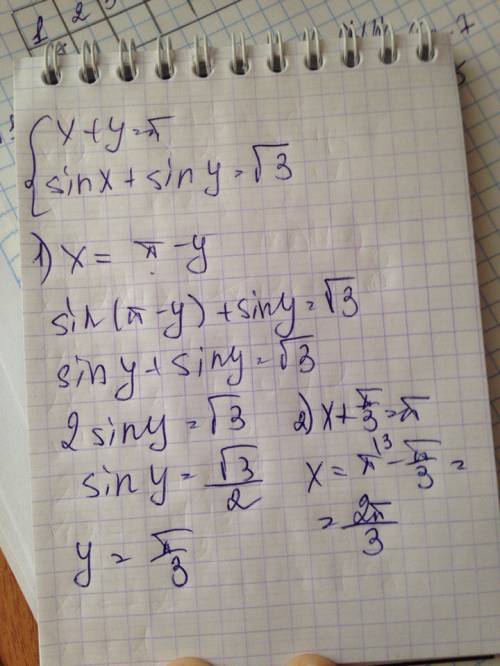 1 2
{ x + y = π
sin x + sin y = √3
1) x = π - y
sin(π - y) + sin y = √3
sin y + sin y = √3
2 sin y = √3
sin y = √3/2
y = π/3
2) x + π/3 = π
x = π\3 - π/3 =
= 2π/3